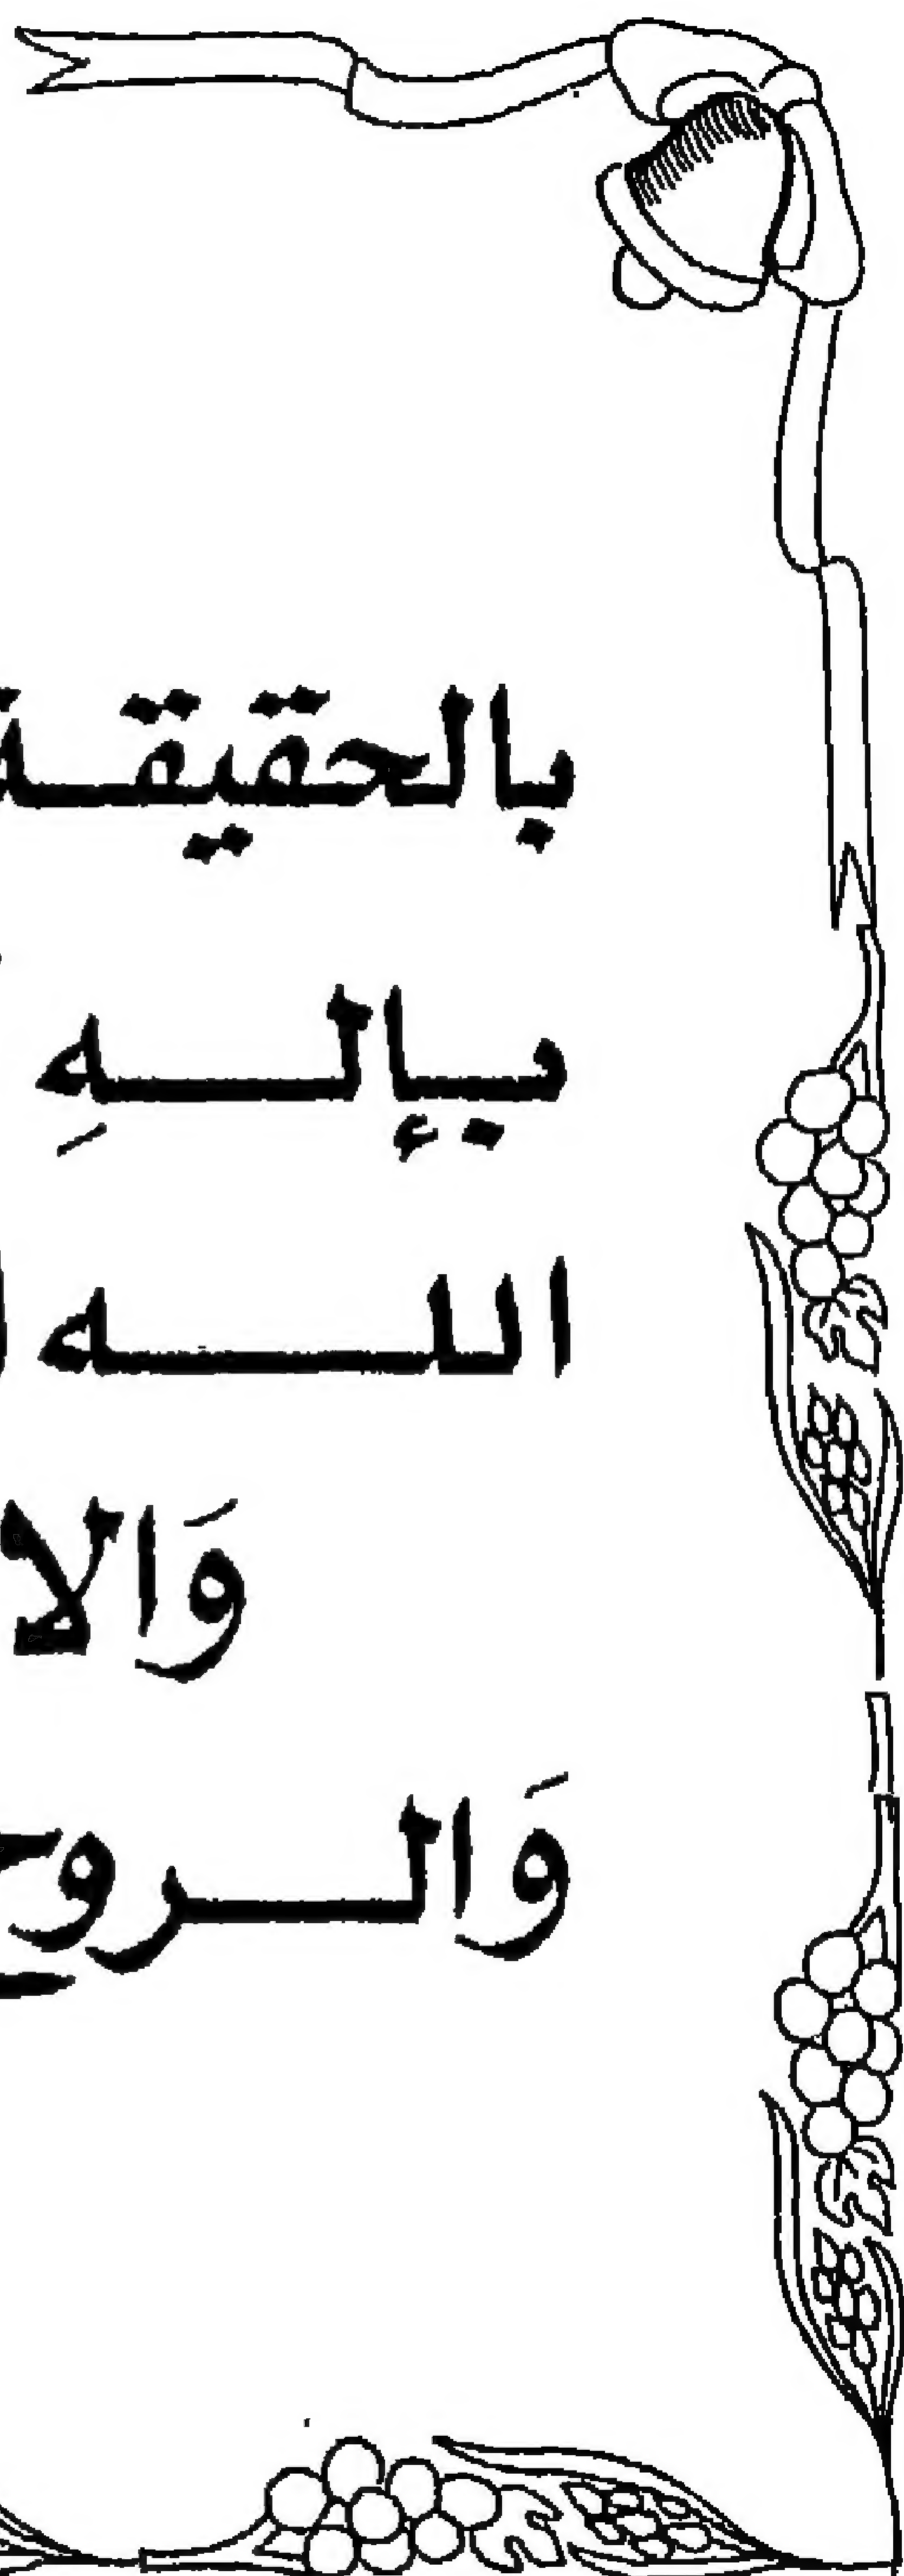 بالحقيقة
بإلهِ
الله
وَالا
وَالروح